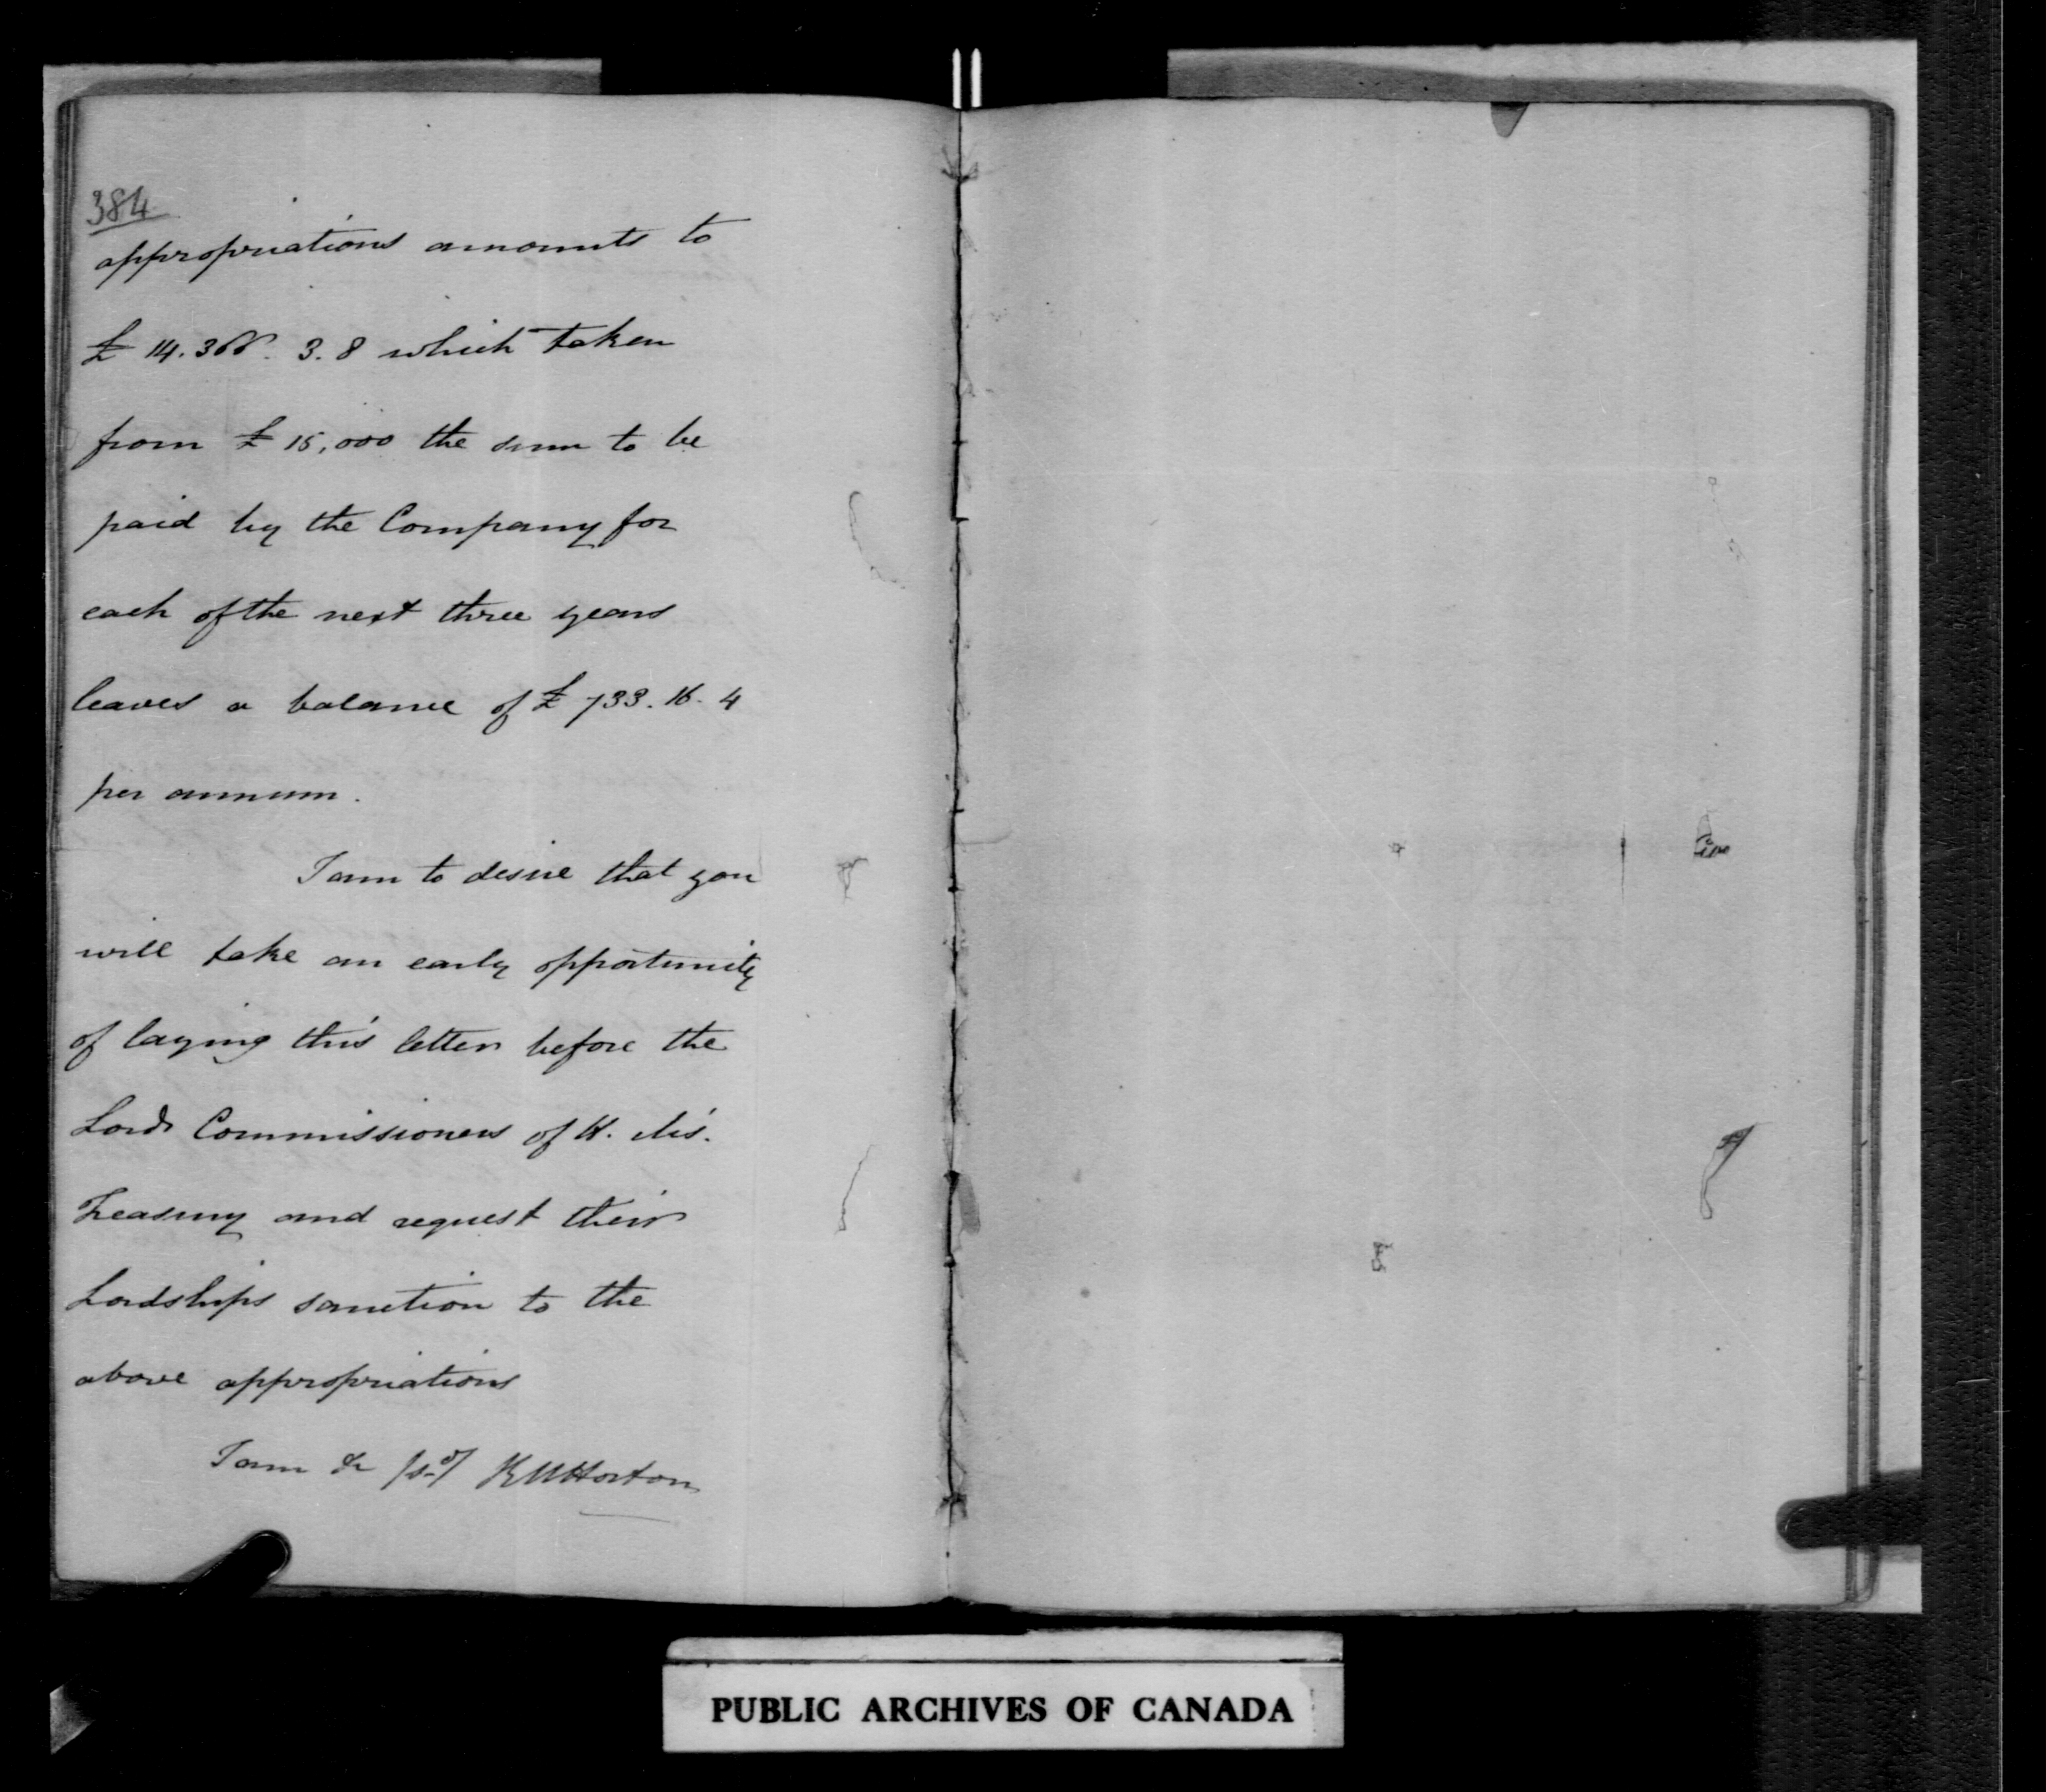 384
appropriations amounts to
£ 14.266. 3. 8 which taken
from £ 15,000 the sum to be
paid by the Company for
each of the next three years
leaves a balance of £ 733. 16. 4
per annum.
I am to desire that you
will take an early opportunity
of laying this letter before the
Lords Commissioners of H. M's.
Treasury and request their
Lordships sanction to the
above appropriations
I am &c /sd/ R W Horton
PUBLIC ARCHIVES OF CANADA